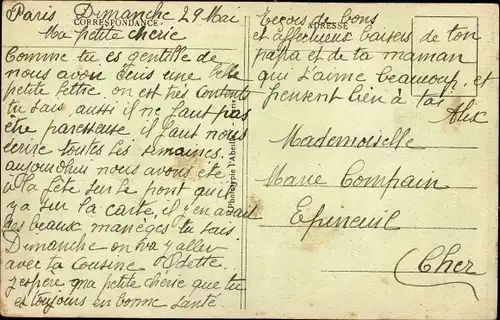 Paris Dimanche 29 Mai
CORRESPONDANCE
Ma petite cherie
Comme tu es gentille de
nous avoir écris une belle
petite lettre, on est très contents
tu sais, aussi il ne faut pas
être paresseuse il faut nous
écrire toutes les semaines.
aujourdhui nous avons été
à la fête sur le pont qu'il
y a sur la carte, il y en avait
des beaux manèges tu sais
Dimanche on va y aller
avec ta Cousine Odette
j'espère ma petite cherie que tu
es toujours en bonne santé.
Phototypie l'Abeille
ADRESSE
Reçois de bons
et affectueux baisers de ton
papa et de ta maman
qui t'aime beaucoup et
pensent bien à toi
Alix
Mademoiselle
Marie Compain
Epineuil
Cher